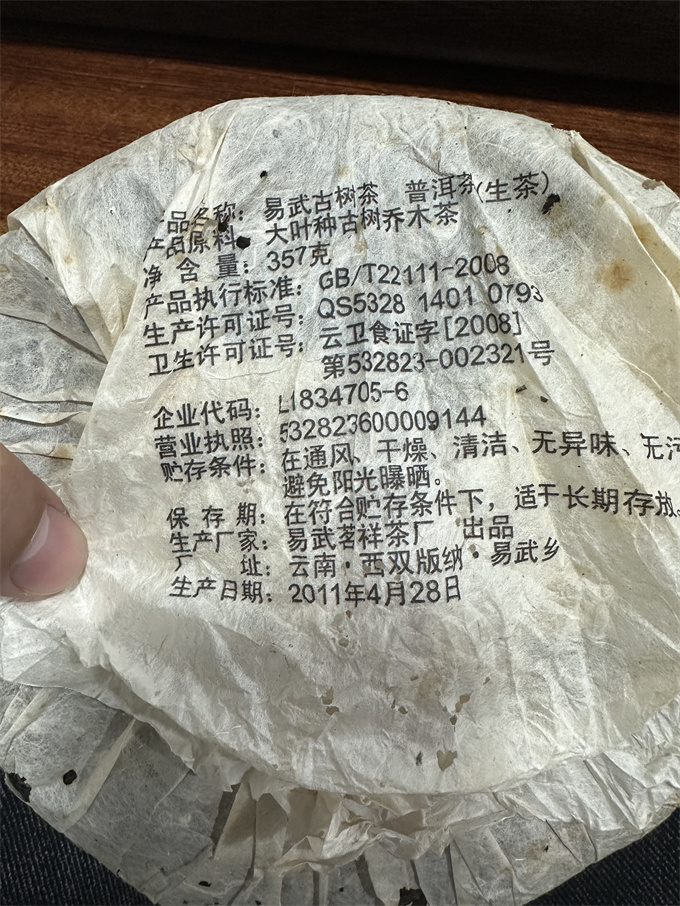 产品名称：易武古树茶 普洱茶(生茶)
产品原料：大叶种古树乔木茶
净含量：357克
产品执行标准：GB/T22111-2008
生产许可证号：QS5328 1401 0793
卫生许可证号：云卫食证字[2008]
第532823-002321号
企业代码：L1834705-6
营业执照：532823600009144
贮存条件：在通风、干燥、清洁、无异味、无污
避免阳光曝晒。
保存期：在符合贮存条件下，适于长期存放。
生产厂家：易武茗祥茶厂 出品
厂址：云南·西双版纳·易武乡
生产日期：2011年4月28日